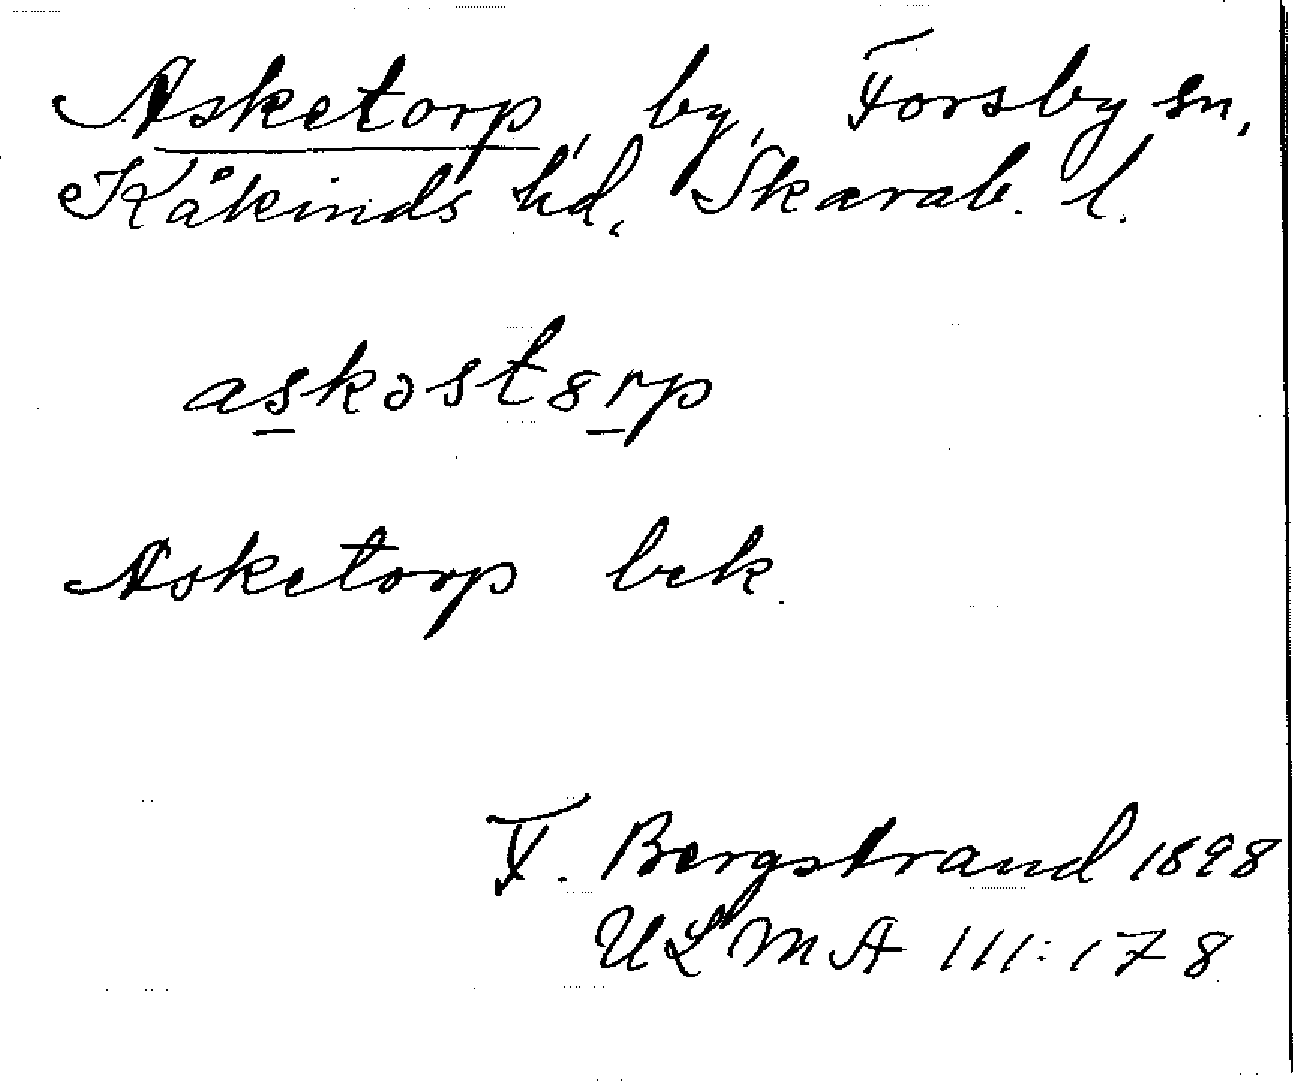 Asketorp, by, Forsby sn,
Kåkinds hd, Skarab. l.
askəst8rp
Asketorp bek.
F. Bergstrand 1898
ULMA 111:178